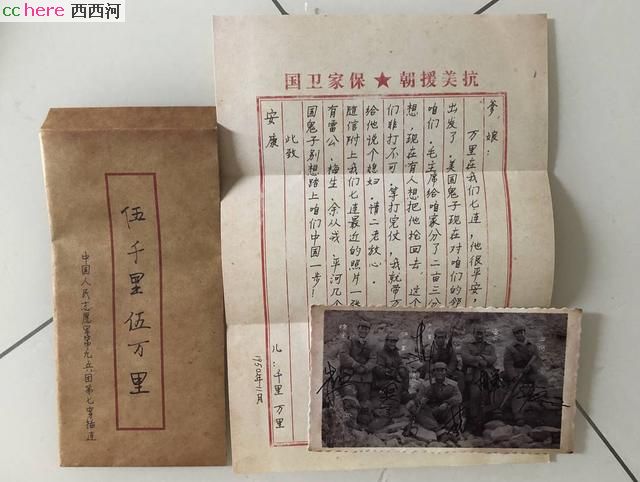 cchere 西西河
抗美援朝★保家卫国
爹娘：
万里在我们七连，他很平安，
出发了。美国鬼子现在对咱们的邻
咱们。毛主席给咱家分了二亩三分
想，现在有人想把他抢回去，这个
们非打不可。等打完仗，我就带万
给他说个媳妇，请二老放心。
随信附上我们七连最近的照片一张
有雷公、梅生、余从戎、平河几个
国鬼子别想踏上咱们中国一步！
此致
安康
儿：千里 万里
1950年11月
伍千里 伍万里
中国人民志愿军第九兵团第七穿插连